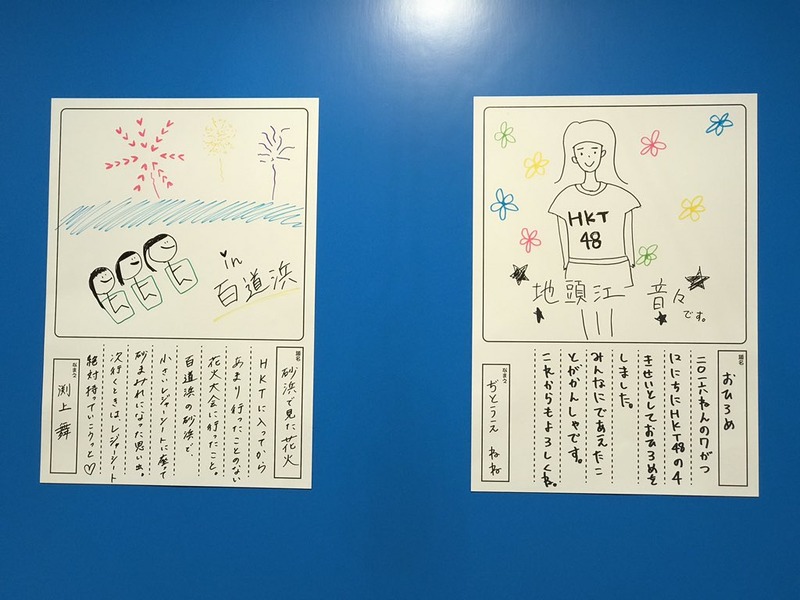 in
百道浜
題名
砂浜で見た花火
HKTに入ってから
あまり行ったことのない
花火大会に行ったこと。
百道浜の砂浜で、
小さいレジャーシートに座て
砂まみれになった思い出。
次行くときはレジャーシート
絶対持っていこうっと♡
なまえ
渕上 舞
HKT
48
地頭江 音々
です。
題名
おひろめ
二〇一六ねんの7がつ
12にちにHKT48の4
きせいとしておひろめを
しました。
みんなにであえたこ
とがかんしゃです。
これからもよろしくね。
なまえ
ぢとうえ ねね